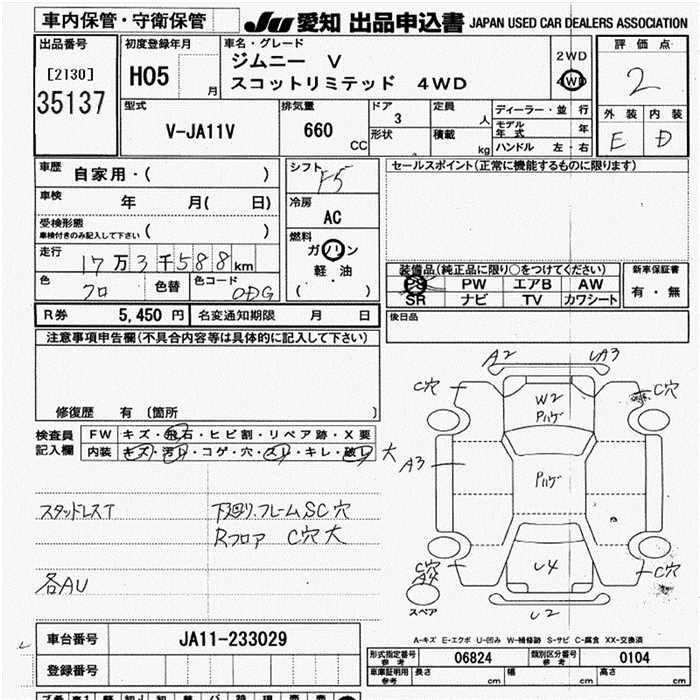 車内保管・守衛保管
JU 愛知 出品申込書 JAPAN USED CAR DEALERS ASSOCIATION
出品番号
[2130]
35137
初度登録年月
H05 月
車名・グレード
ジムニー V
スコットリミテッド 4WD
2WD
4WD
評価点
2
外装 内装
E D
型式
V-JA11V
排気量
660 CC
ドア
3
形状
定員
人
積載
kg
ディーラー・並行
モデル年式 年
ハンドル 左・右
車歴
自家用・( )
車検
年 月( 日)
受検形態
車検付きのみ記入して下さい ( )
走行
17万3千588km
色
クロ
色替
色コード
0DG
シフト
F5
冷房
AC
燃料
ガソリン
軽・油
( )
セールスポイント(正常に機能するものに限ります)
装備品(純正品に限り○をつけてください)
PS PW エアB AW
SR ナビ TV カワシート
新車保証書
有・無
R券 5,450 円 名変通知期限 月 日
後日品
注意事項申告欄(不具合内容等は具体的に記入して下さい)
修復歴 有 〔箇所 〕
検査員
記入欄
FW キズ・飛石・ヒビ割・リペア跡・X要
内装 キズ・汚れ・コゲ・穴・スレ・キレ・破レ 大
スタッドレスT
下回り.フレームSC穴
Rフロア C穴 大
各AU
A2
UA3
C穴
C穴
W2
Pハゲ
A3
Pハゲ
C穴
A4
U4
C穴
スペア
U2
A-キズ E-エクボ U-凹み W-補修跡 S-サビ C-腐食 XX-交換済
車台番号 JA11-233029
登録番号
形式指定番号
参考
06824
類別区分番号
参考
0104
車庫証明用
参考
長さ cm 幅 cm 高さ cm